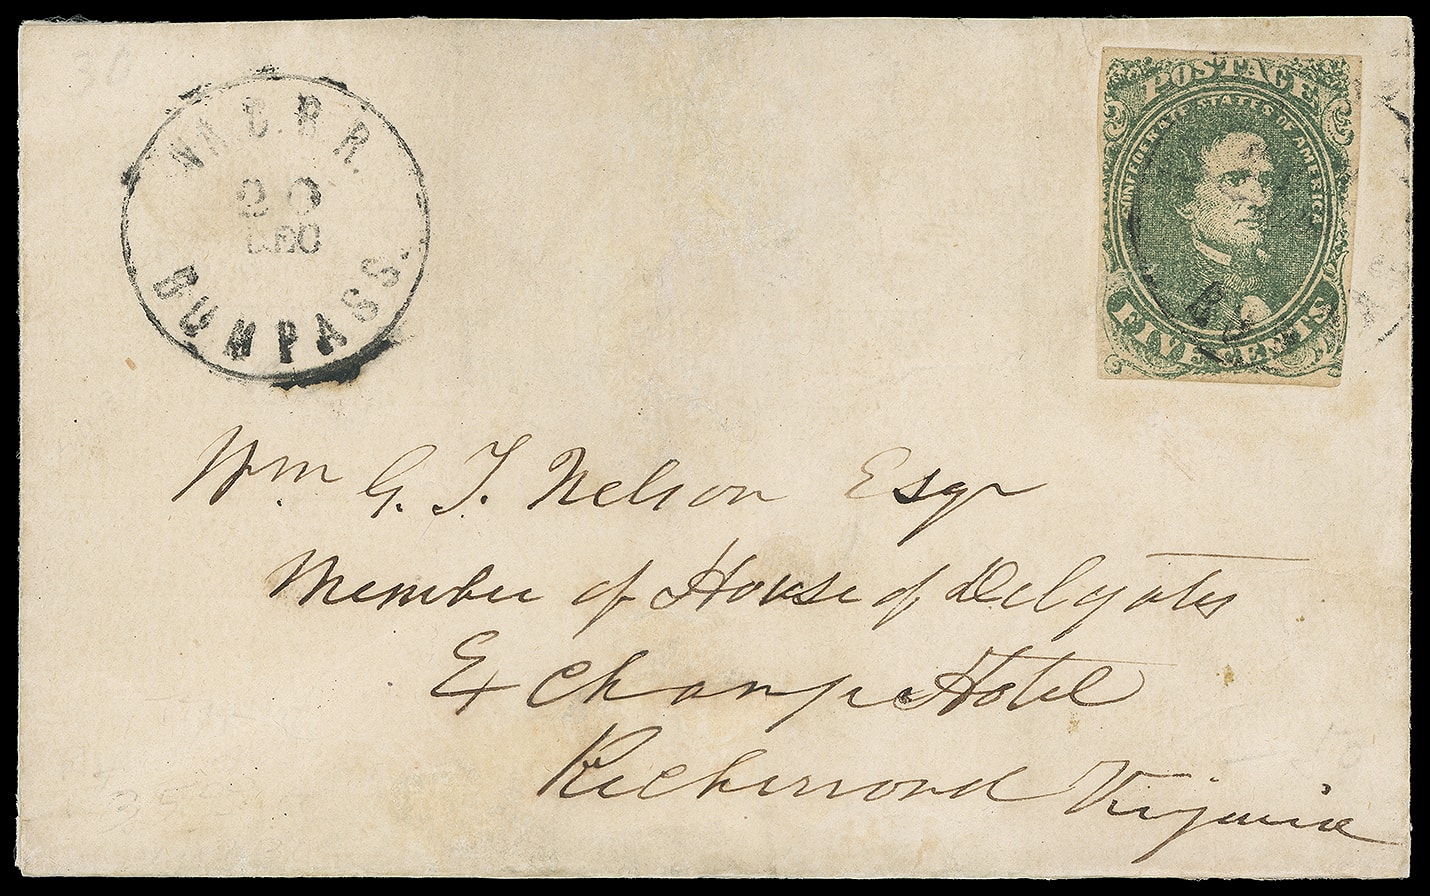 30
VA. C. R. R.
20
DEC
BUMPASS.
POSTAGE
CONFEDERATE STATES OF AMERICA
FIVE CENTS
BU
Wm G. T. Nelson Esqr
Member of House of Delgates
Exchange Hotel
Richmond Virginia